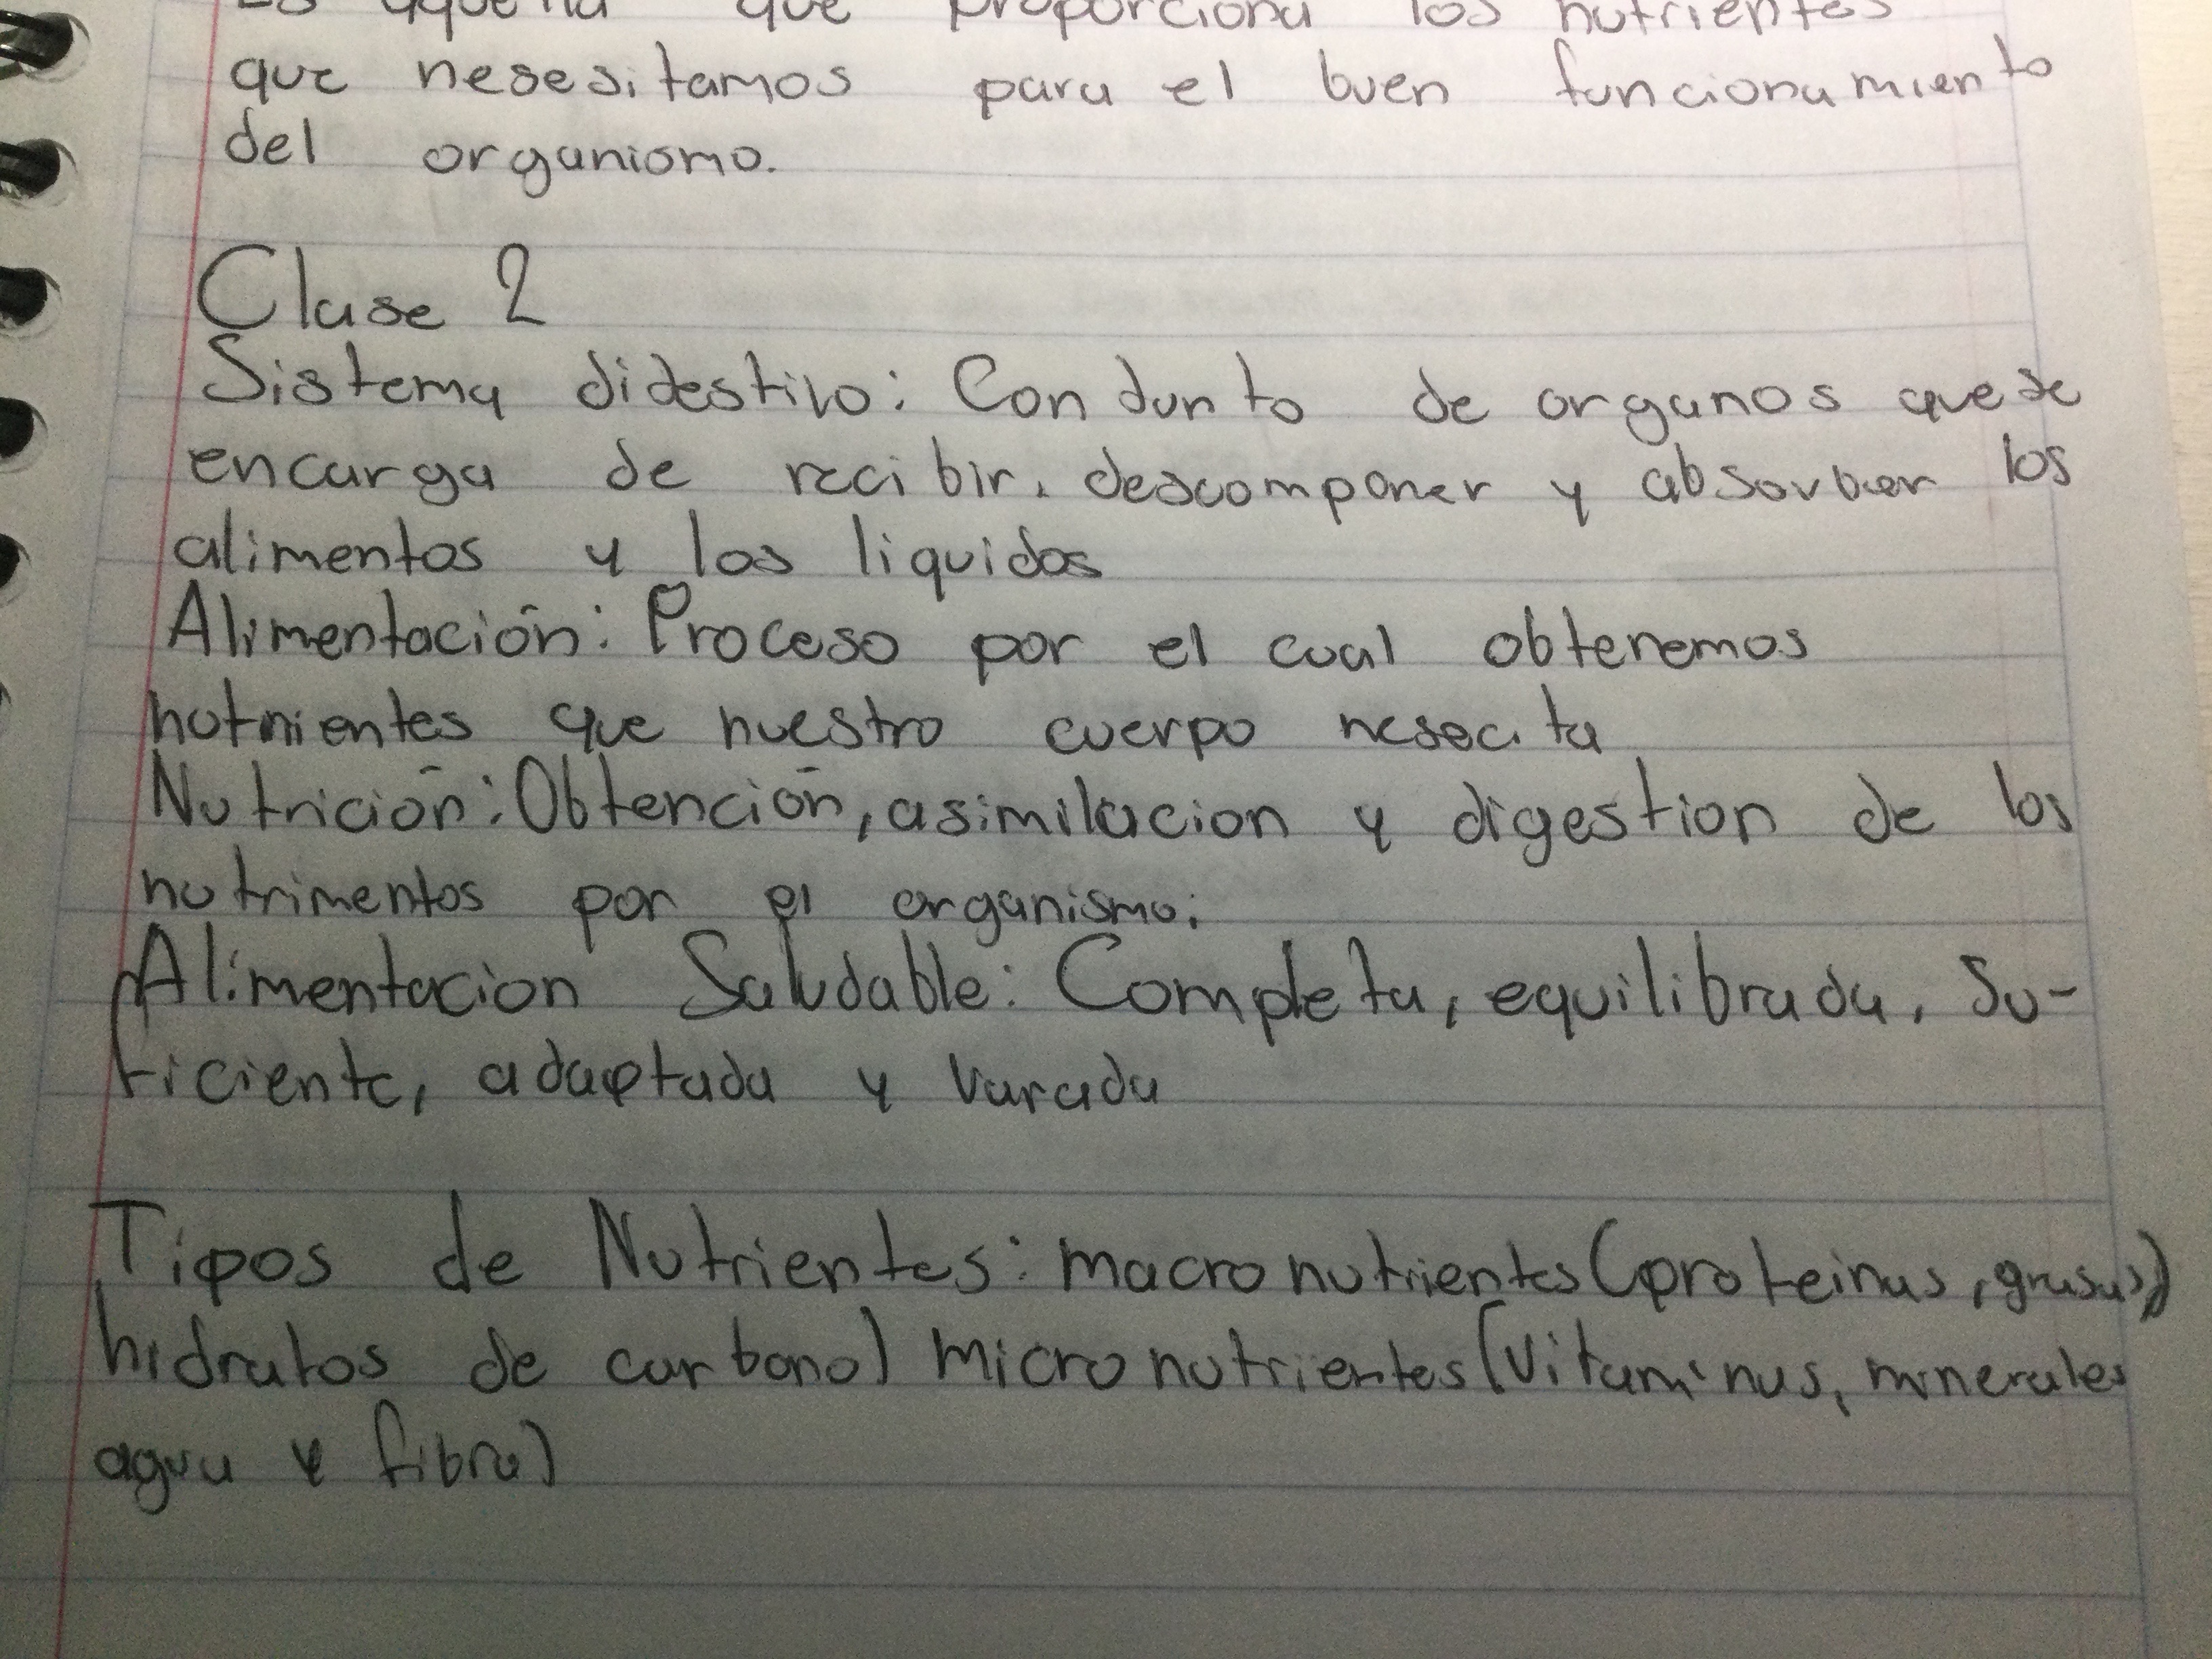 Es aquella que proporciona los nutrientes
que nesesitamos para el buen funcionamiento
del organismo.
Clase 2
Sistema didestivo: Condunto de organos que se
encarga de recibir. descomponer y absorver los
alimentos y los liquidos
Alimentación: Proceso por el cual obtenemos
nutrientes que nuestro cuerpo nesecita
Nutrición: Obtención, asimilacion y digestion de los
nutrimentos por el organismo.
Alimentacion Saludable: Completa, equilibrada, Su-
ficiente, adaptada y varada
Tipos de Nutrientes: macronutrientes (proteinas, grasas,
hidratos de carbono) micronutrientes (vitaminas, minerales
agua y fibra)